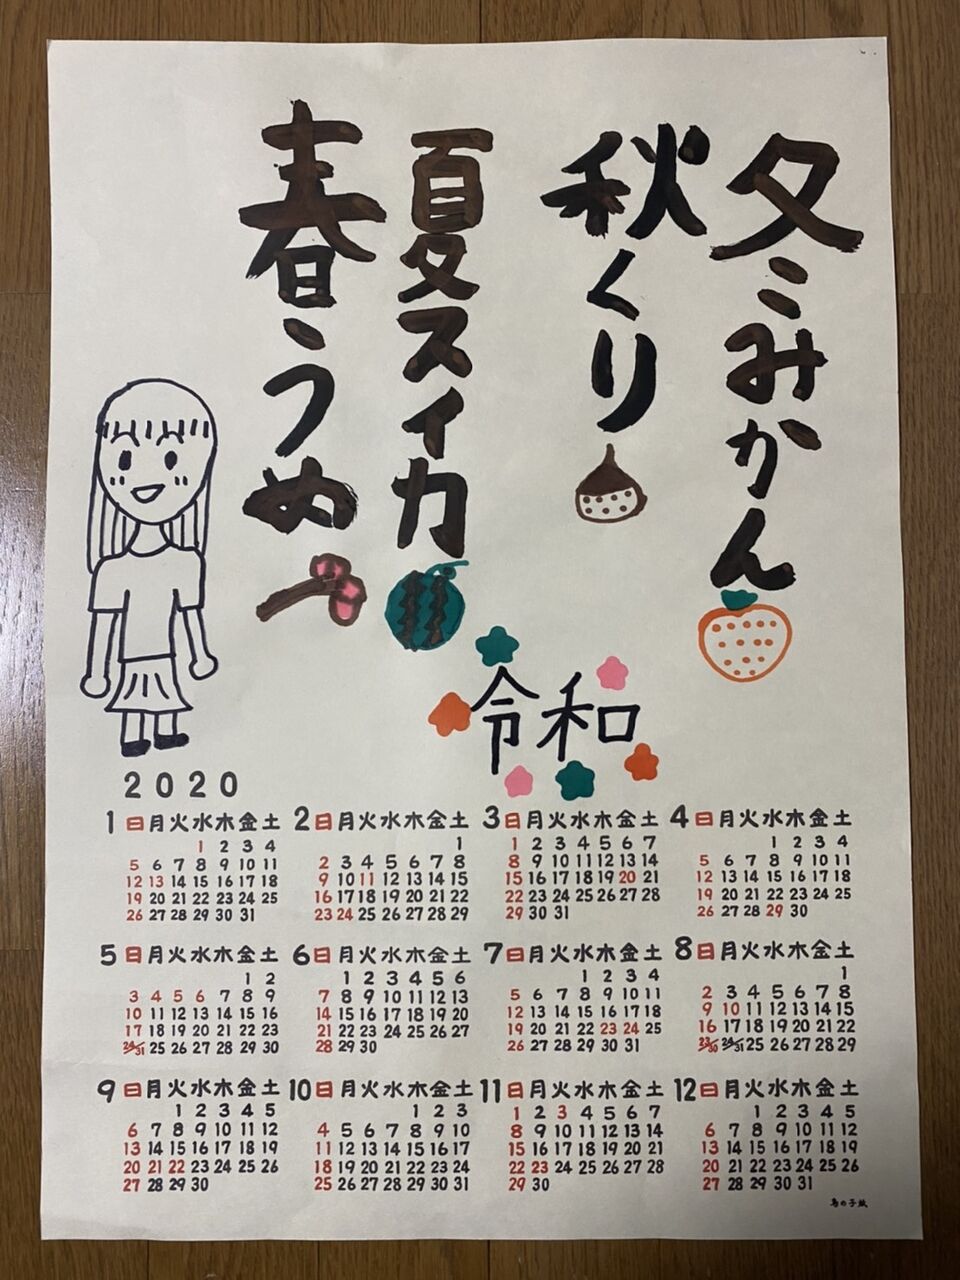 冬みかん
秋くり
夏スイカ
春うめ
令和
2020
1 日月火水木金土
1 2 3 4
5 6 7 8 9 10 11
12 13 14 15 16 17 18
19 20 21 22 23 24 25
26 27 28 29 30 31
2 日月火水木金土
1
2 3 4 5 6 7 8
9 10 11 12 13 14 15
16 17 18 19 20 21 22
23 24 25 26 27 28 29
3 日月火水木金土
1 2 3 4 5 6 7
8 9 10 11 12 13 14
15 16 17 18 19 20 21
22 23 24 25 26 27 28
29 30 31
4 日月火水木金土
1 2 3 4
5 6 7 8 9 10 11
12 13 14 15 16 17 18
19 20 21 22 23 24 25
26 27 28 29 30
5 日月火水木金土
1 2
3 4 5 6 7 8 9
10 11 12 13 14 15 16
17 18 19 20 21 22 23
24/31 25 26 27 28 29 30
6 日月火水木金土
1 2 3 4 5 6
7 8 9 10 11 12 13
14 15 16 17 18 19 20
21 22 23 24 25 26 27
28 29 30
7 日月火水木金土
1 2 3 4
5 6 7 8 9 10 11
12 13 14 15 16 17 18
19 20 21 22 23 24 25
26 27 28 29 30 31
8 日月火水木金土
1
2 3 4 5 6 7 8
9 10 11 12 13 14 15
16 17 18 19 20 21 22
23/30 24/31 25 26 27 28 29
9 日月火水木金土
1 2 3 4 5
6 7 8 9 10 11 12
13 14 15 16 17 18 19
20 21 22 23 24 25 26
27 28 29 30
10 日月火水木金土
1 2 3
4 5 6 7 8 9 10
11 12 13 14 15 16 17
18 19 20 21 22 23 24
25 26 27 28 29 30 31
11 日月火水木金土
1 2 3 4 5 6 7
8 9 10 11 12 13 14
15 16 17 18 19 20 21
22 23 24 25 26 27 28
29 30
12 日月火水木金土
1 2 3 4 5
6 7 8 9 10 11 12
13 14 15 16 17 18 19
20 21 22 23 24 25 26
27 28 29 30 31
鳥の子紙